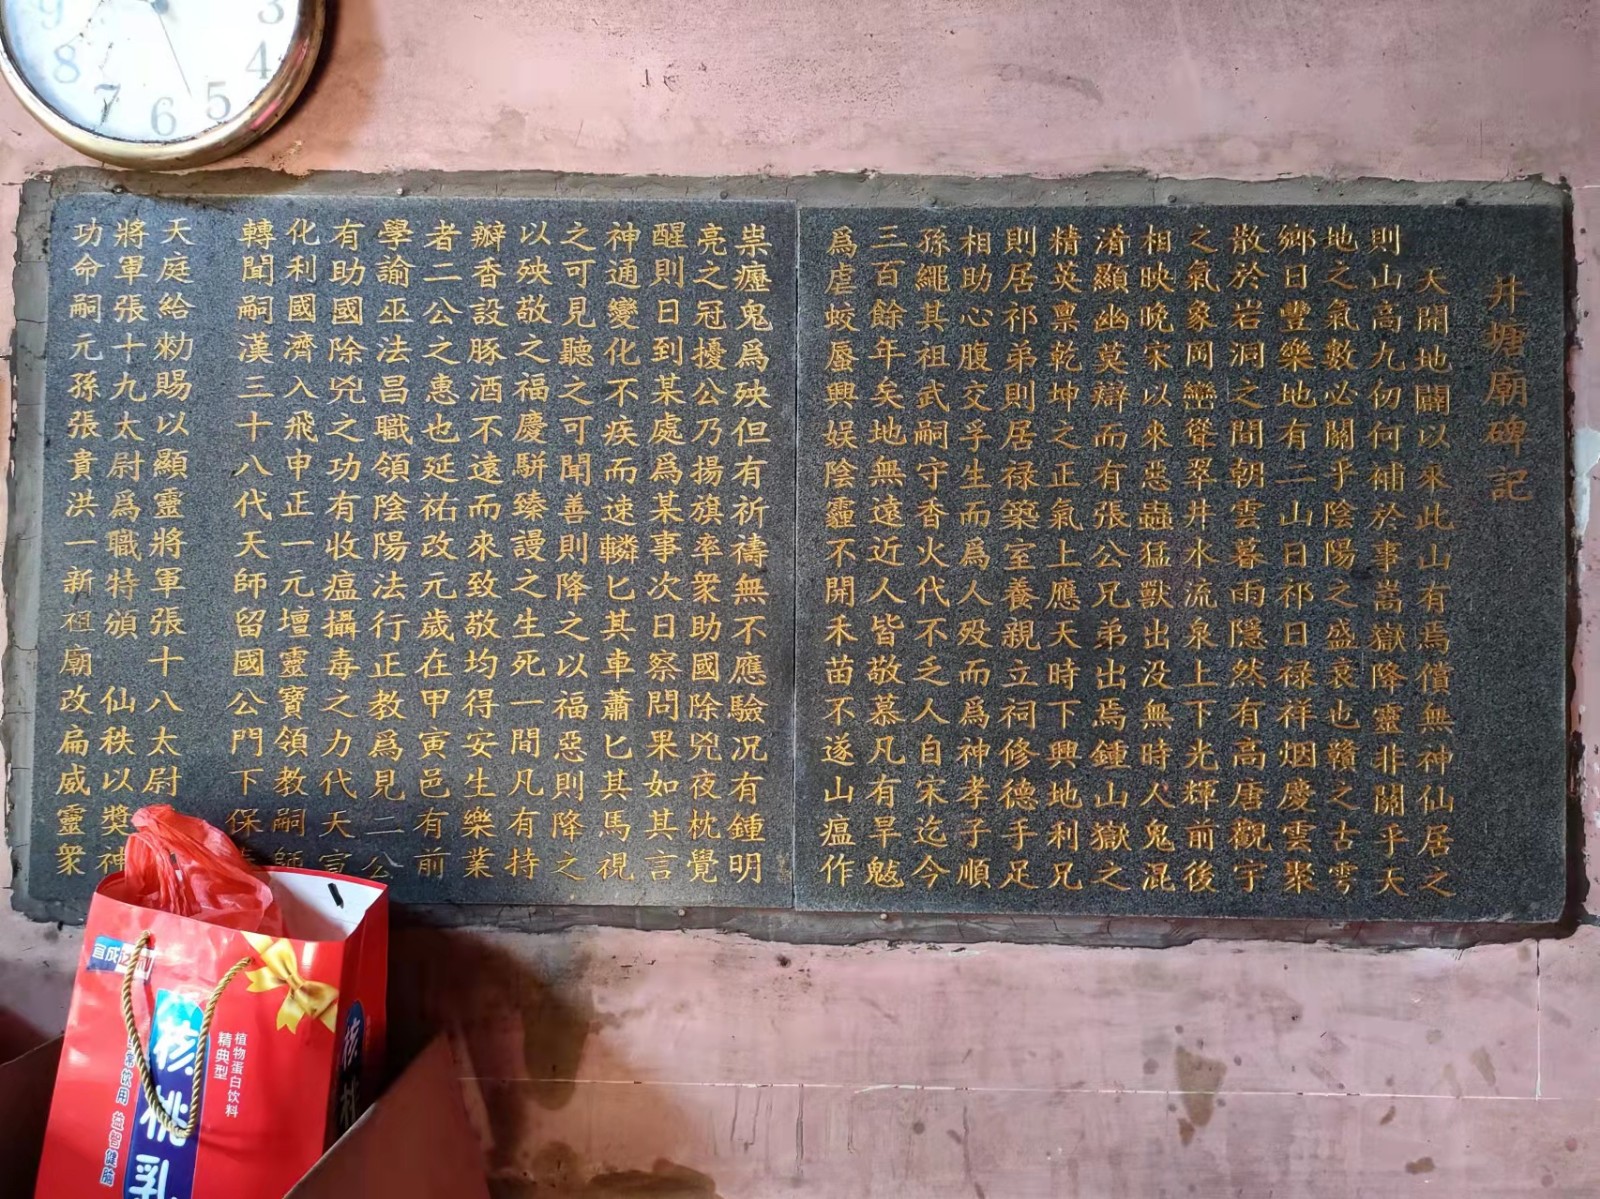 井塘廟碑記
天開地闢以來此山有焉償無神仙居之
則山高九仞何補於事嵩嶽降靈非關乎天
地之氣數必關乎陰陽之盛衰也贛之古雩
鄉日豐樂地有二山日祁日禄祥烟慶雲聚
散於岩洞之間朝雲暮雨隱然有高唐觀宇
之氣象岡巒聳翠井水流泉上下光輝前後
相映晚宋以來惡蟲猛獸出没無時人鬼混
淆顯幽莫辯而有張公兄弟出焉鍾山嶽之
精英禀乾坤之正氣上應天時下興地利兄
則居祁弟則居禄築室養親立祠修德手足
相助心腹交孚生而爲人殁而爲神孝子順
孫繩其祖武嗣守香火代不乏人自宋迄今
三百餘年矣地無遠近人皆敬慕凡有旱魃
爲虐蛟蜃興娱陰霾不開禾苗不遂山瘟作
祟癧鬼爲殃但有祈禱無不應驗况有鍾明
亮之冠擾公乃揚旗率衆助國除兇夜枕覺
醒則日到某處爲某事次日察問果如其言
神通變化不疾而速轔匕其車蕭匕其馬視
之可見聽之可聞善則降之以福惡則降之
以殃敬之福慶駢臻謾之生死一間凡有持
瓣香設豚酒不遠而來致敬均得安生樂業
者二公之惠也延祐改元歲在甲寅邑有前
學諭巫法昌職領陰陽法行正教爲見二公
有助國除兇之功有收瘟攝毒之力代天宣
化利國濟入飛申正一元壇靈寶領教嗣師
轉聞嗣漢三十八代天師留國公門下保
天庭給勑賜以顯靈將軍張十八太尉
將軍張十九太尉爲職特頒 仙秩以奬神
功命嗣元孫張貴洪一新祖廟改扁威靈衆
3
4
5
6
7
8
9
核桃乳
植物蛋白饮料
精典型
常饮用 益智健脑
核桃